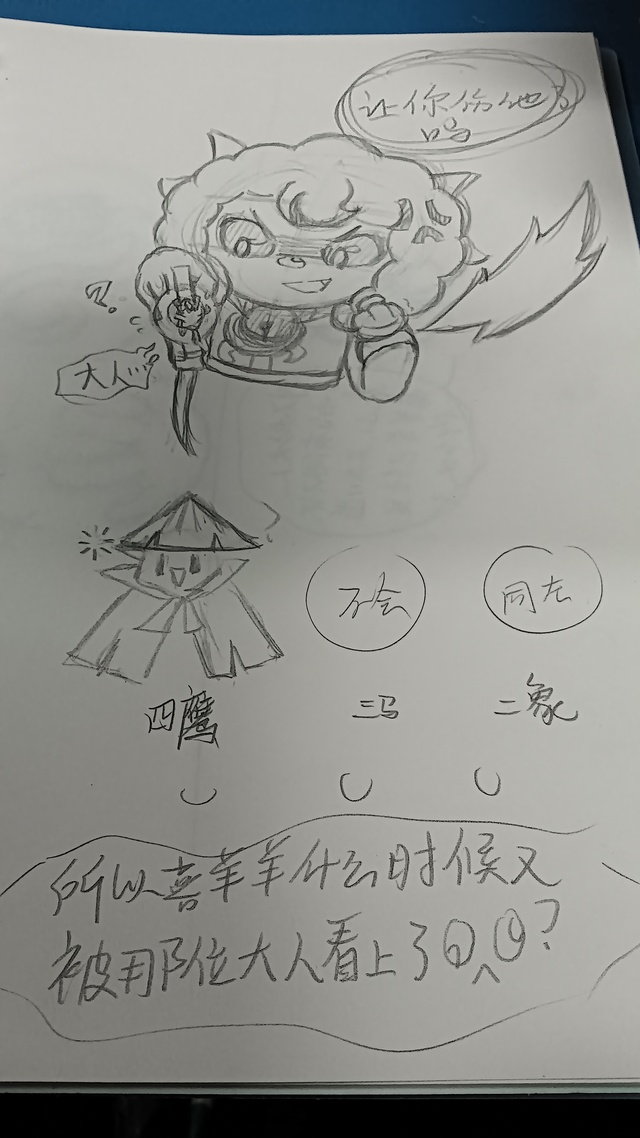 让你伤他了
吗
?
大人…
?
不会
同左
四鹰
三马
二象
所以喜羊羊什么时候又
被用那位大人看上了⊙^⊙?